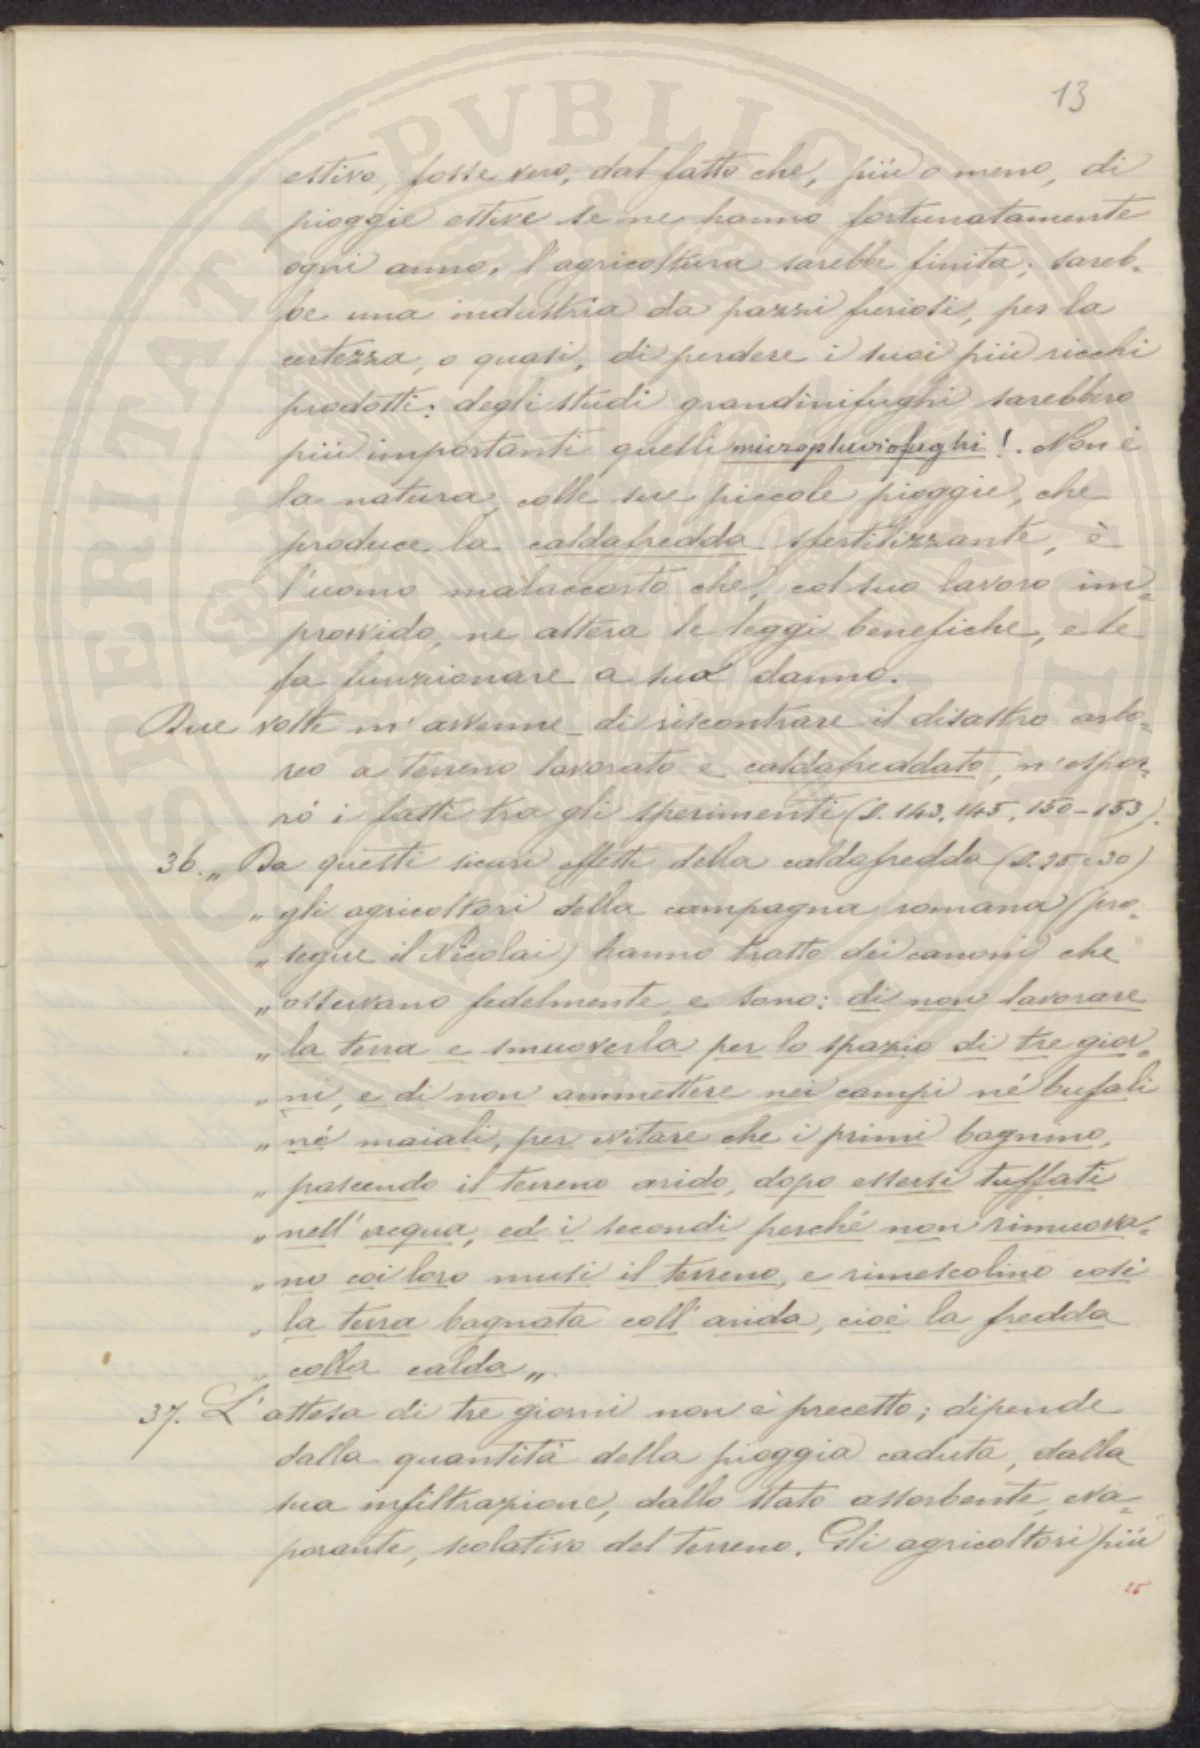 13
estivo, fosse vero, dal fatto che, più o meno, di
pioggie estive se ne hanno fortunatamente
ogni anno, l'agricoltura sarebbe finita; sareb-
be una industria da pazzi furiosi, per la
certezza, o quasi, di perdere i suoi più ricchi
prodotti: degli studi grandinifughi sarebbero
più importanti quelli micropluviofughi!. Non è
la natura, colle sue piccole pioggie, che
produce la caldafredda sfertilizzante, è
l'uomo malaccorto che, col suo lavoro im-
provvido, ne altera le leggi benefiche, e le
fa funzionare a suo danno.
Due volte m'avvenne di riscontrare il disastro arbo-
reo a terreno lavorato e caldafreddato, n'espor-
rò i fatti tra gli sperimenti (S. 143, 145, 150-153).
36. „ Da questi sicuri effetti della caldafredda (S. 25 e 30)
„ gli agricoltori della campagna romana (pro-
„ segue il Nicolai) hanno tratto dei canoni che
„ osservano fedelmente e sono: di non lavorare
„ la terra e smuoverla per lo spazio di tre gior-
„ ni, e di non ammettere nei campi né bufali
„ né maiali, per evitare che i primi bagnino,
„ pascendo il terreno arido, dopo essersi tuffati
„ nell'acqua, ed i secondi perché non rimuova-
„ no coi loro musi il terreno, e rimescolino così
„ la terra bagnata coll'arida, cioè la fredda
„ colla calda „.
37. L'attesa di tre giorni non è precetto; dipende
dalla quantità della pioggia caduta, dalla
sua infiltrazione, dallo stato assorbente, eva-
porante, scolativo del terreno. Gli agricoltori più
15
PVBLICAE
PROSPERITATI